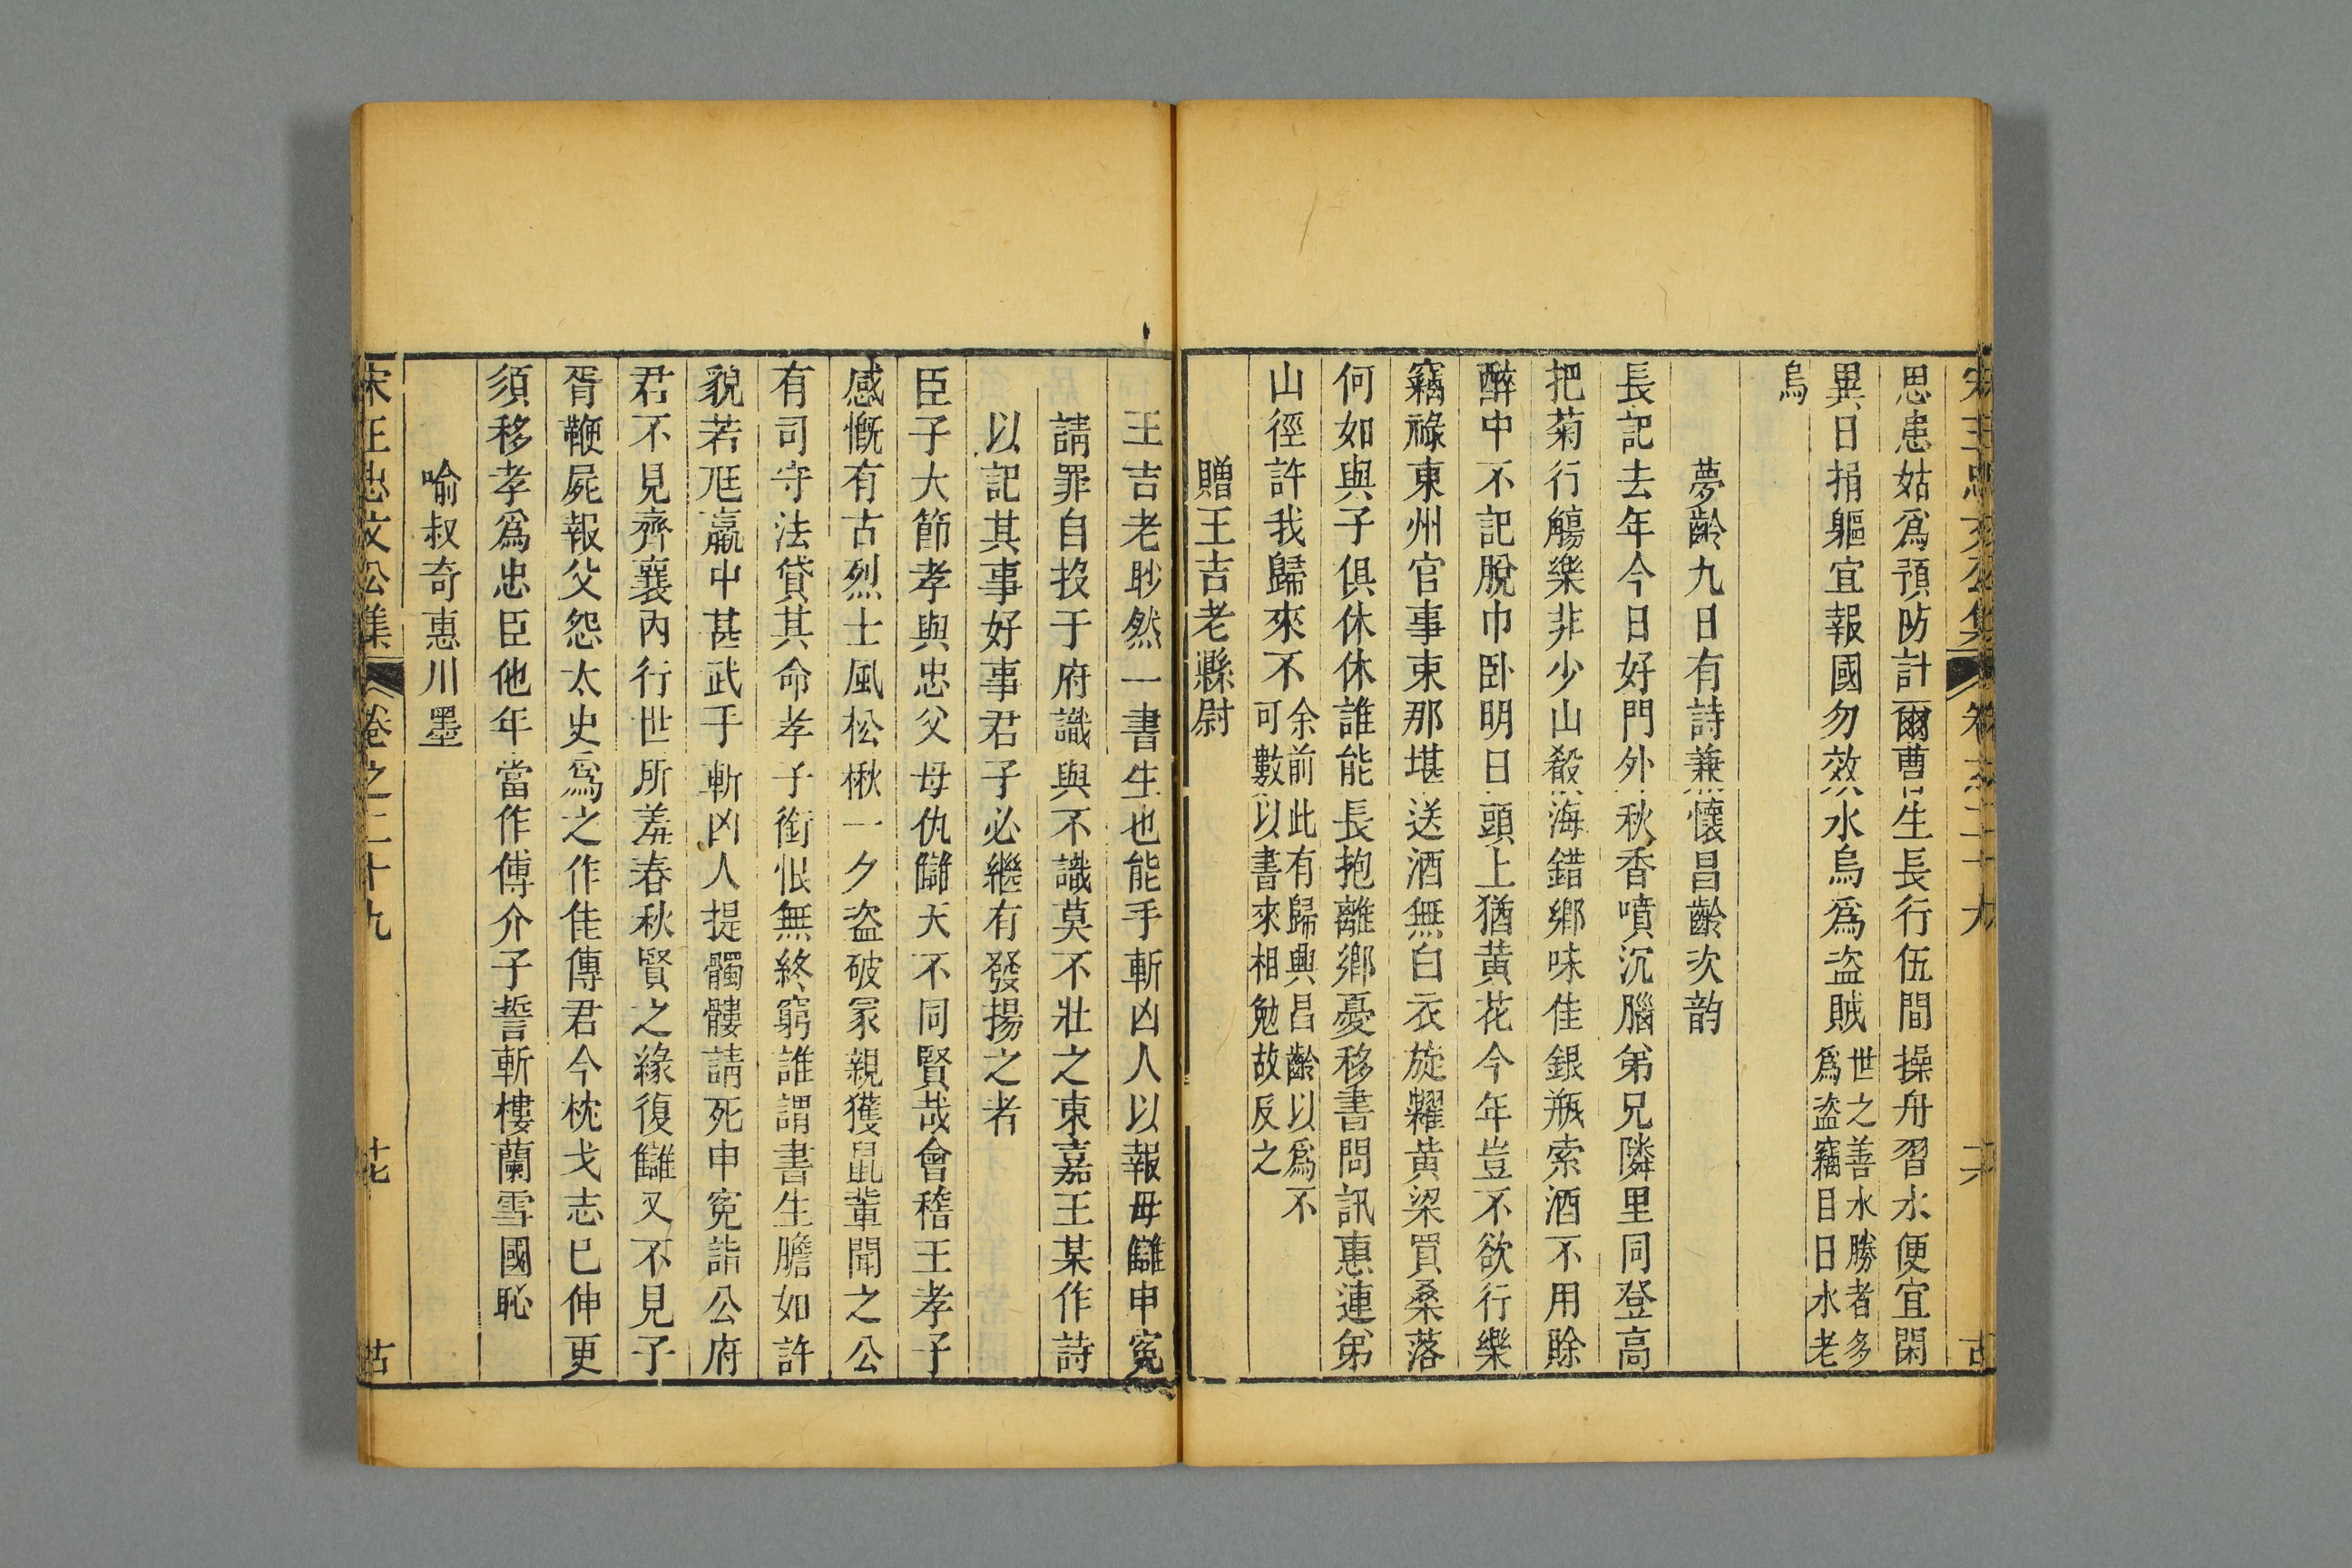 宋王忠文公集 卷之二十九 十六 古
思患姑爲預防計爾曹生長行伍間操舟習水便宜閑
異日捐軀宜報國勿效水烏爲盜賊世之善水勝者多
爲盜竊目曰水老
烏
夢齡九日有詩兼懷昌齡次韵
長記去年今日好門外秋香噴沉腦弟兄隣里同登高
把菊行觴樂非少山殽海錯鄉味佳銀瓶索酒不用賒
醉中不記脫巾卧明日頭上猶黃花今年豈不欲行樂
竊祿東州官事束那堪送酒無白衣旋糶黃粱買桑落
何如與子俱休休誰能長抱離鄉憂移書問訊惠連弟
山徑許我歸來不余前此有歸興昌齡以爲不
可數以書來相勉故反之
贈王吉老縣尉
王吉老眇然一書生也能手斬凶人以報母讎申寃
請罪自投于府識與不識莫不壯之東嘉王某作詩
以記其事好事君子必繼有發揚之者
臣子大節孝與忠父母仇讎天不同賢哉會稽王孝子
感慨有古烈士風松楸一夕盜破冢親獲鼠輩聞之公
有司守法貸其命孝子銜恨無終窮誰謂書生膽如許
貌若尫羸中甚武手斬凶人提髑髏請死申寃詣公府
君不見齊襄內行世所羞春秋賢之緣復讎又不見子
胥鞭屍報父怨太史爲之作佳傳君今枕戈志已伸更
須移孝爲忠臣他年當作傅介子誓斬樓蘭雪國恥
喻叔奇惠川墨
宋王忠文公集 卷之二十九 十七 古